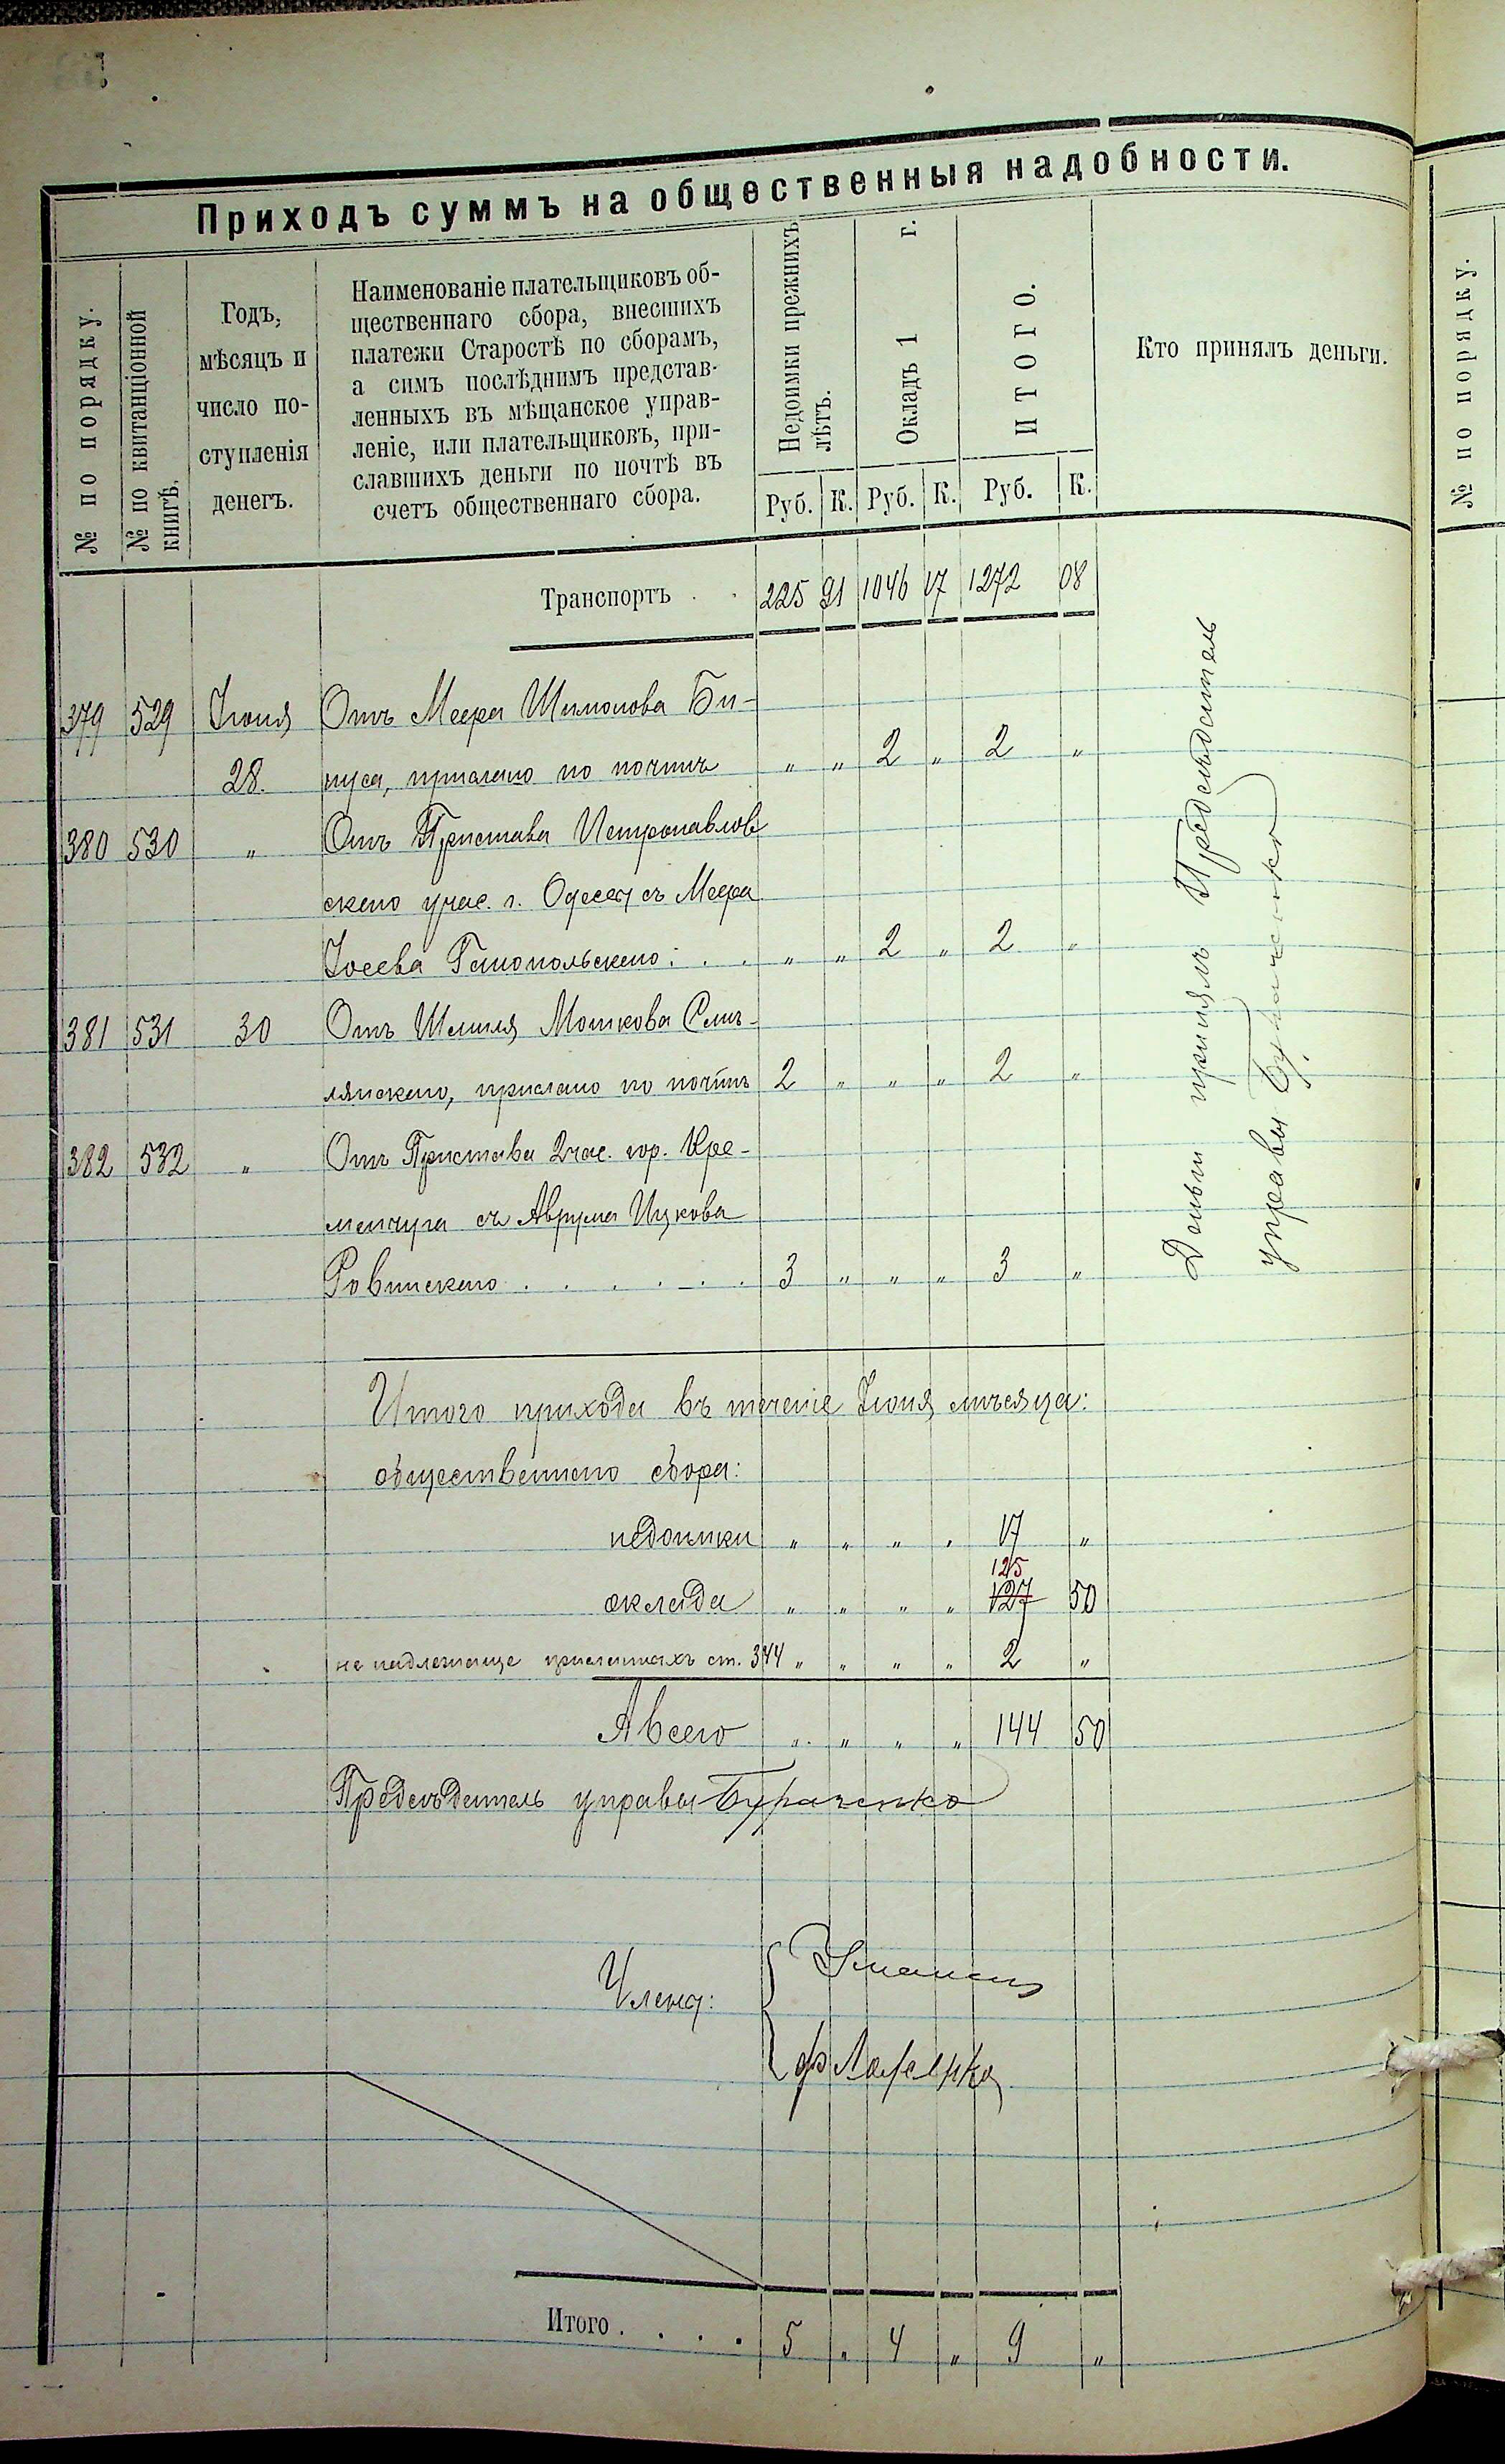 Приходъ суммъ на общественныя надобности.
№ по порядку.
№ по квитанціонной
книгѣ.
Годъ,
мѣсяцъ и
число по-
ступленія
денегъ.
Наименованіе плательщиковъ об-
щественнаго сбора, внесшихъ
платежи Старостѣ по сборамъ,
а симъ послѣднимъ представ-
ленныхъ въ мѣщанское управ-
леніе, или плательщиковъ, при-
славшихъ деньги по почтѣ въ
счетъ общественнаго сбора.
Недоимки прежнихъ
лѣтъ.
Окладъ 1 г.
ИТОГО.
Кто принялъ деньги.
Руб. К. Руб. К. Руб. К.
Транспортъ . . 225 91 1046 17 1272 08
379 529 Іюня Отъ Меера Шимонова Би-
28. нуса, прислано по почтѣ " " 2 " 2 "
380 530 " Отъ Пристава Петропавлов
скаго учас. г. Одессы съ Меера
Іосева Ганопольскаго . . . " " 2 " 2 "
381 531 30 Отъ Шмиля Мошкова Смѣ-
лянскаго, прислано по почтѣ 2 " " " 2 "
382 532 " Отъ Пристава 2 час. гор. Кре-
менчуга съ Аврума Ицкова
Ровинскаго . . . . . . 3 " " " 3 "
Деньги принялъ Предсѣдатель
управы Бураченко
Итого прихода въ теченіе Іюня мѣсяца:
общественнаго сбора:
недоимки " " " " 17 "
125
оклада " " " " 127 50
не надлежаще присланныхъ ст. 344 " " " " 2 "
А всего " " " " 144 50
Предсѣдатель управы Бураченко
Члены:
Итого . . . . 5 " 4 " 9 "
№ по порядку.